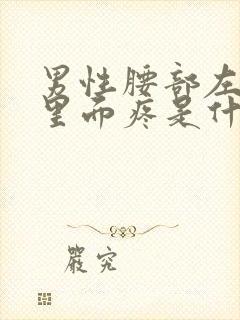 男性腰部左
里面疼是什
严究